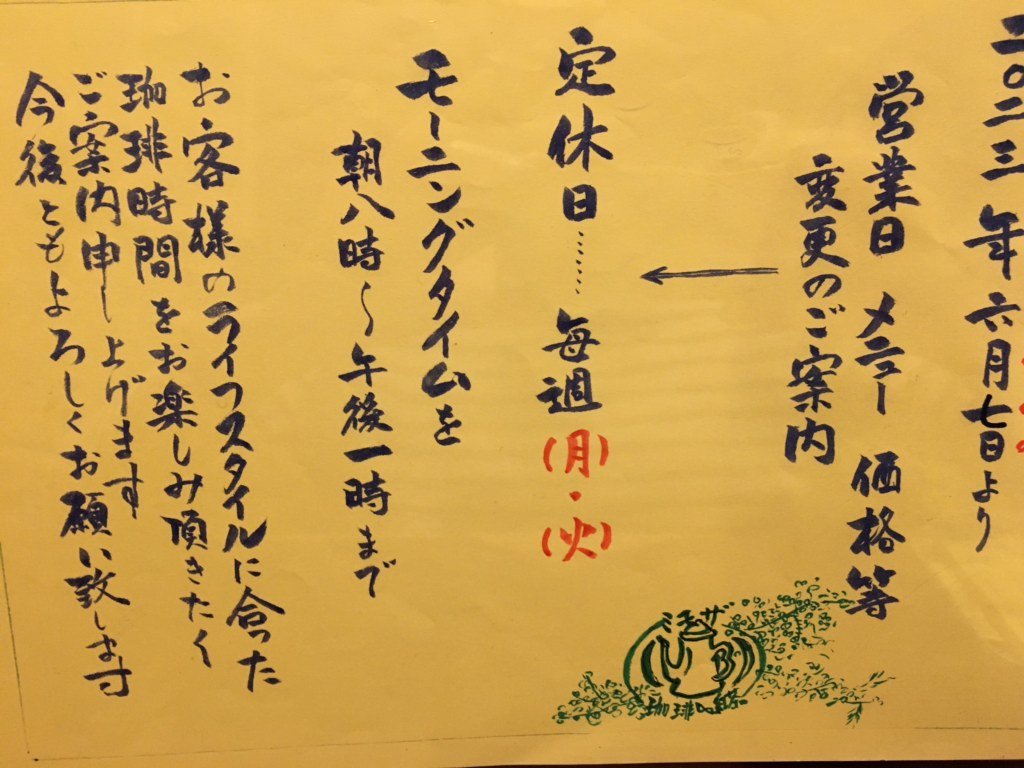 二〇二三年六月七日より
営業日 メニュー 価格等
変更のご案内
定休日……毎週(月)・(火)
モーニングタイムを
朝八時〜午後一時まで
お客様のライフスタイルに合った
珈琲時間をお楽しみ頂きたく
ご案内申し上げます
今後ともよろしくお願い致します
珈琲の